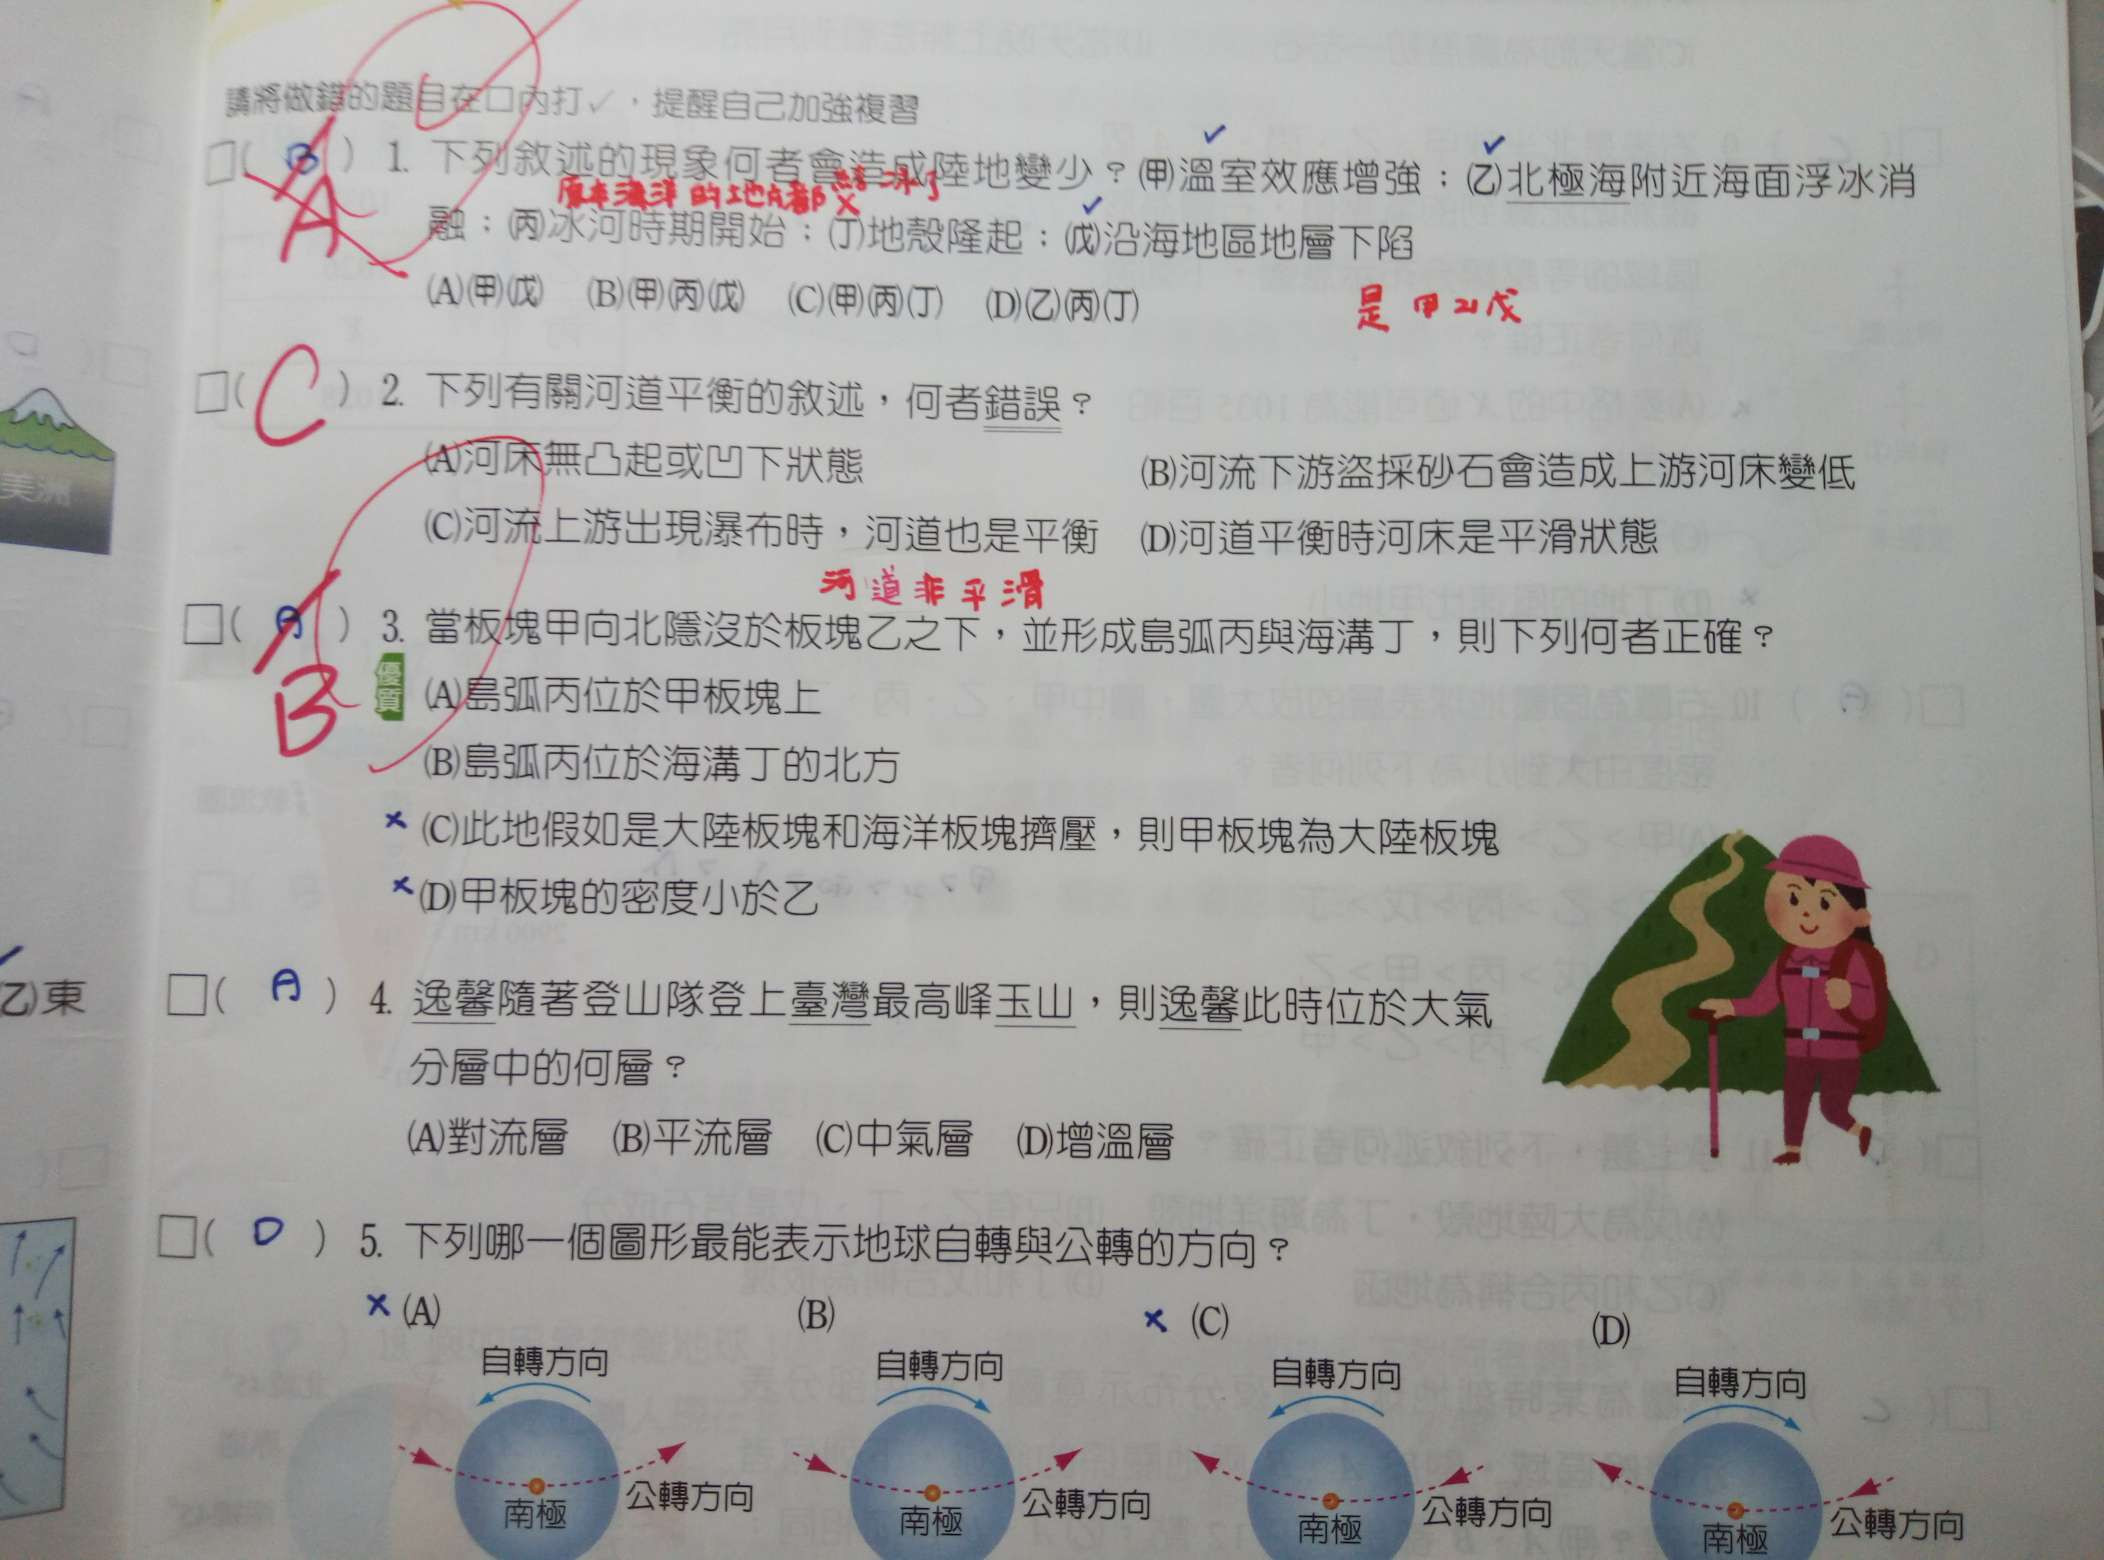 請將做錯的題目在□內打✓，提醒自己加強複習
□( B ) 1. 下列敘述的現象何者會造成陸地變少？(甲)溫室效應增強；(乙)北極海附近海面浮冰消
A
原本海洋的地方都結冰了
融；(丙)冰河時期開始；(丁)地殼隆起；(戊)沿海地區地層下陷
(A)(甲)(戊) (B)(甲)(丙)(戊) (C)(甲)(丙)(丁) (D)(乙)(丙)(丁)
是甲乙戊
□( C ) 2. 下列有關河道平衡的敘述，何者錯誤？
(A)河床無凸起或凹下狀態 (B)河流下游盜採砂石會造成上游河床變低
(C)河流上游出現瀑布時，河道也是平衡 (D)河道平衡時河床是平滑狀態
河道非平滑
□( A ) 3. 當板塊甲向北隱沒於板塊乙之下，並形成島弧丙與海溝丁，則下列何者正確？
B
優質
(A)島弧丙位於甲板塊上
(B)島弧丙位於海溝丁的北方
× (C)此地假如是大陸板塊和海洋板塊擠壓，則甲板塊為大陸板塊
× (D)甲板塊的密度小於乙
□( A ) 4. 逸馨隨著登山隊登上臺灣最高峰玉山，則逸馨此時位於大氣
分層中的何層？
(A)對流層 (B)平流層 (C)中氣層 (D)增溫層
□( D ) 5. 下列哪一個圖形最能表示地球自轉與公轉的方向？
× (A) (B) × (C) (D)
自轉方向 自轉方向 自轉方向 自轉方向
公轉方向 公轉方向 公轉方向 公轉方向
南極 南極 南極 南極
美洲
(乙)東